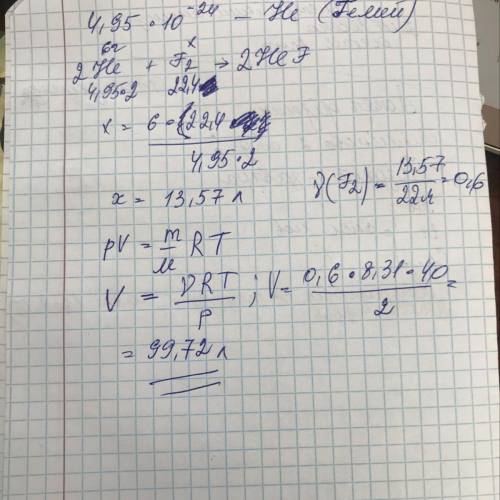 4,95·10⁻²⁴ – He (Гелий)
6г x
2He + F₂ → 2HeF
4,95·2 22,4
x = 6·(22,4
4,95·2
x = 13,57 л
ν(F₂) = 13,57 / 22,4 = 0,6
pV = m/M RT
V = νRT / p ; V = 0,6·8,31·40 / 2 =
= 99,72 л